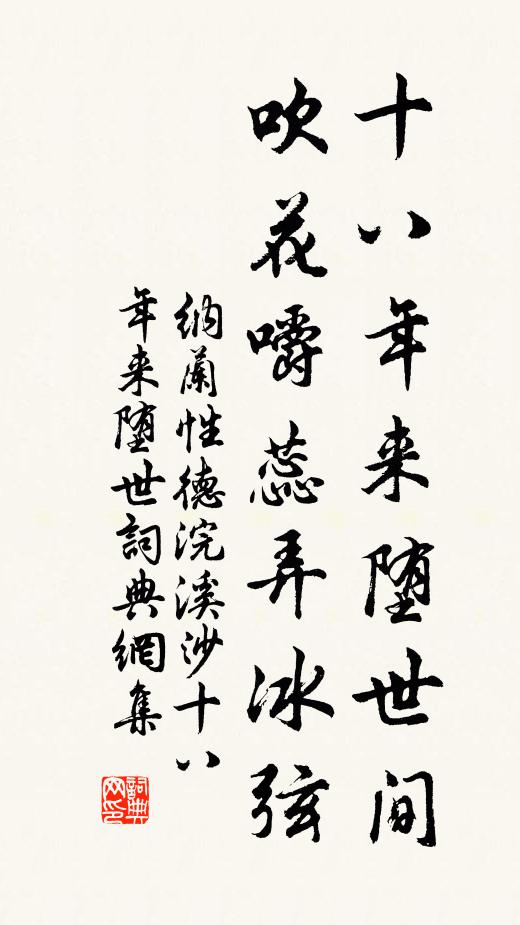 十八年来堕世间
吹花嚼蕊弄冰弦
纳兰性德浣溪沙十八
年来堕世詞典網集
詞典网印